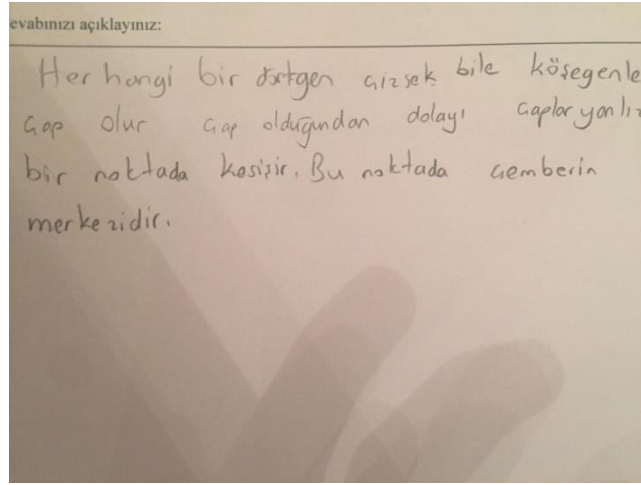 evabınızı açıklayınız:
Her hangi bir dörtgen çizsek bile köşegenle
çap olur çap olduğundan dolayı çaplar yanlız
bir noktada kesişir. Bu noktada çemberin
merkezidir.